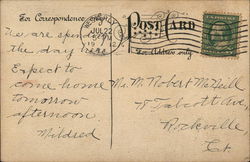 For Correspondence only
POSTCARD
For Address only
JUL 22
We are spending
the day
Expect to
come home
tomorrow
afternoon.
Mildred
Mr. Robert McNeill
Talcott Ave
Rockville
Ct.